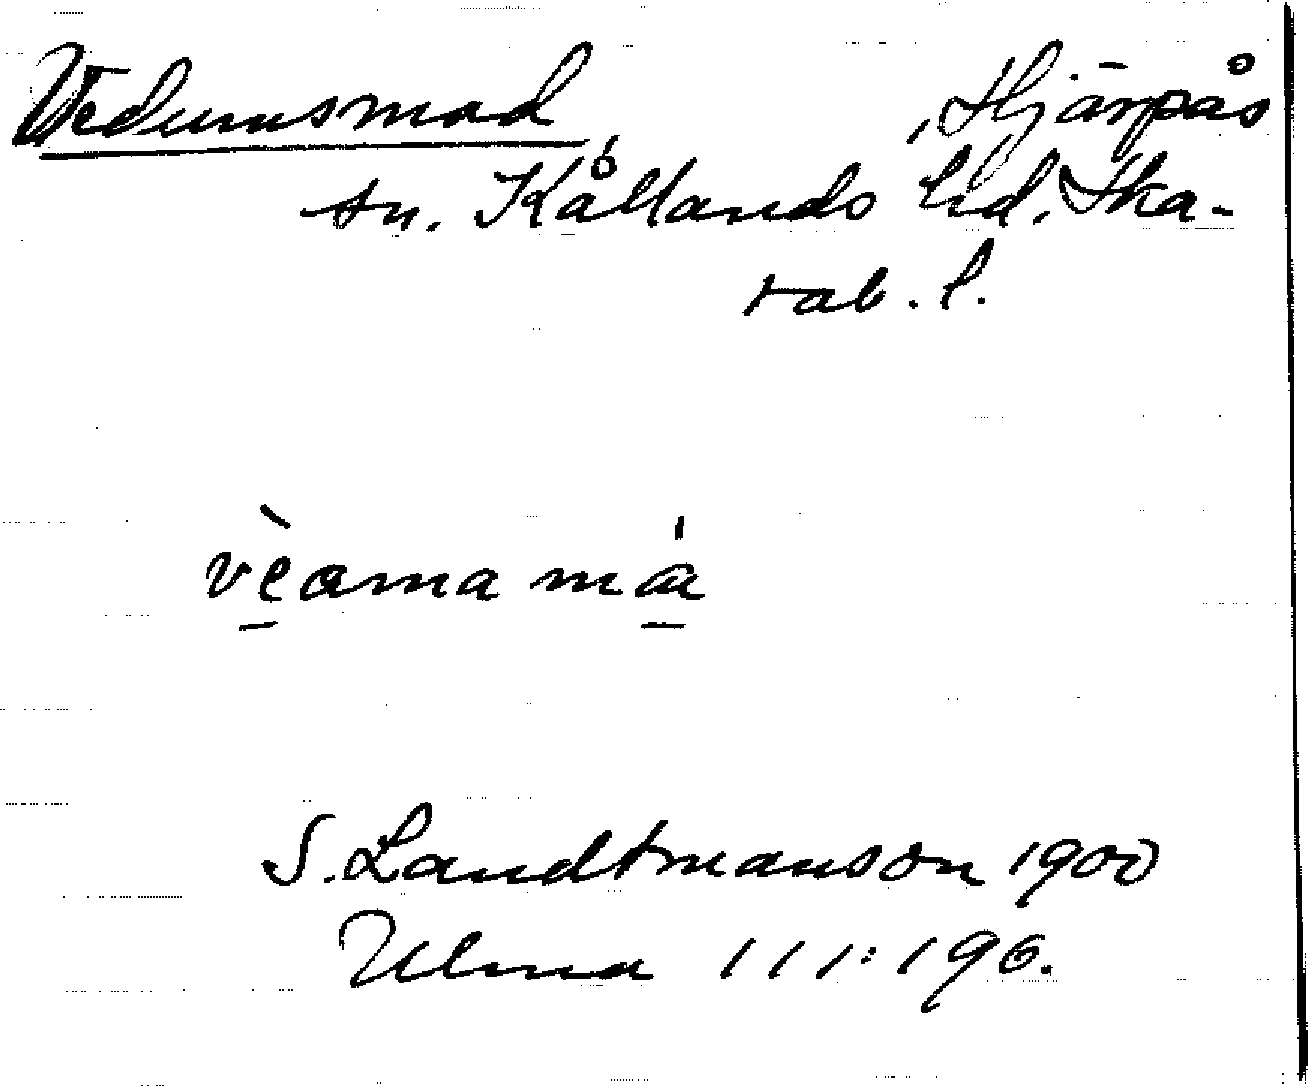 Vedumsmad, Hjärpås
sn. Kållands hd. Ska-
rab. l.
vèama má
S. Landtmanson 1900
Ulma 111:196.